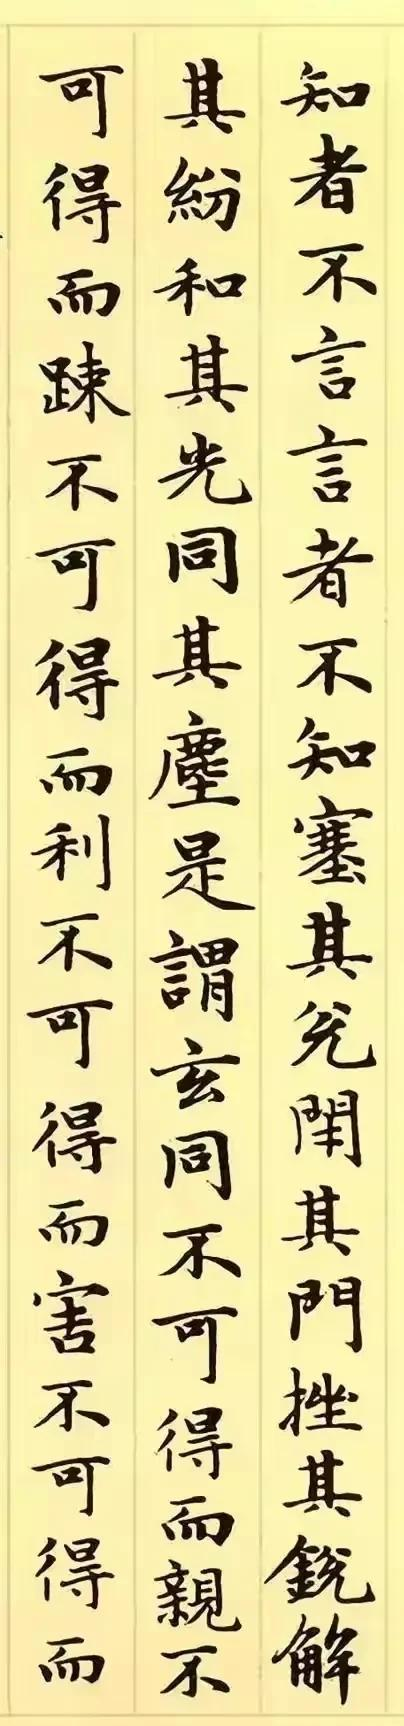 知者不言言者不知塞其兊閈其門挫其銳解
其紛和其光同其塵是謂玄同不可得而親不
可得而踈不可得而利不可得而害不可得而